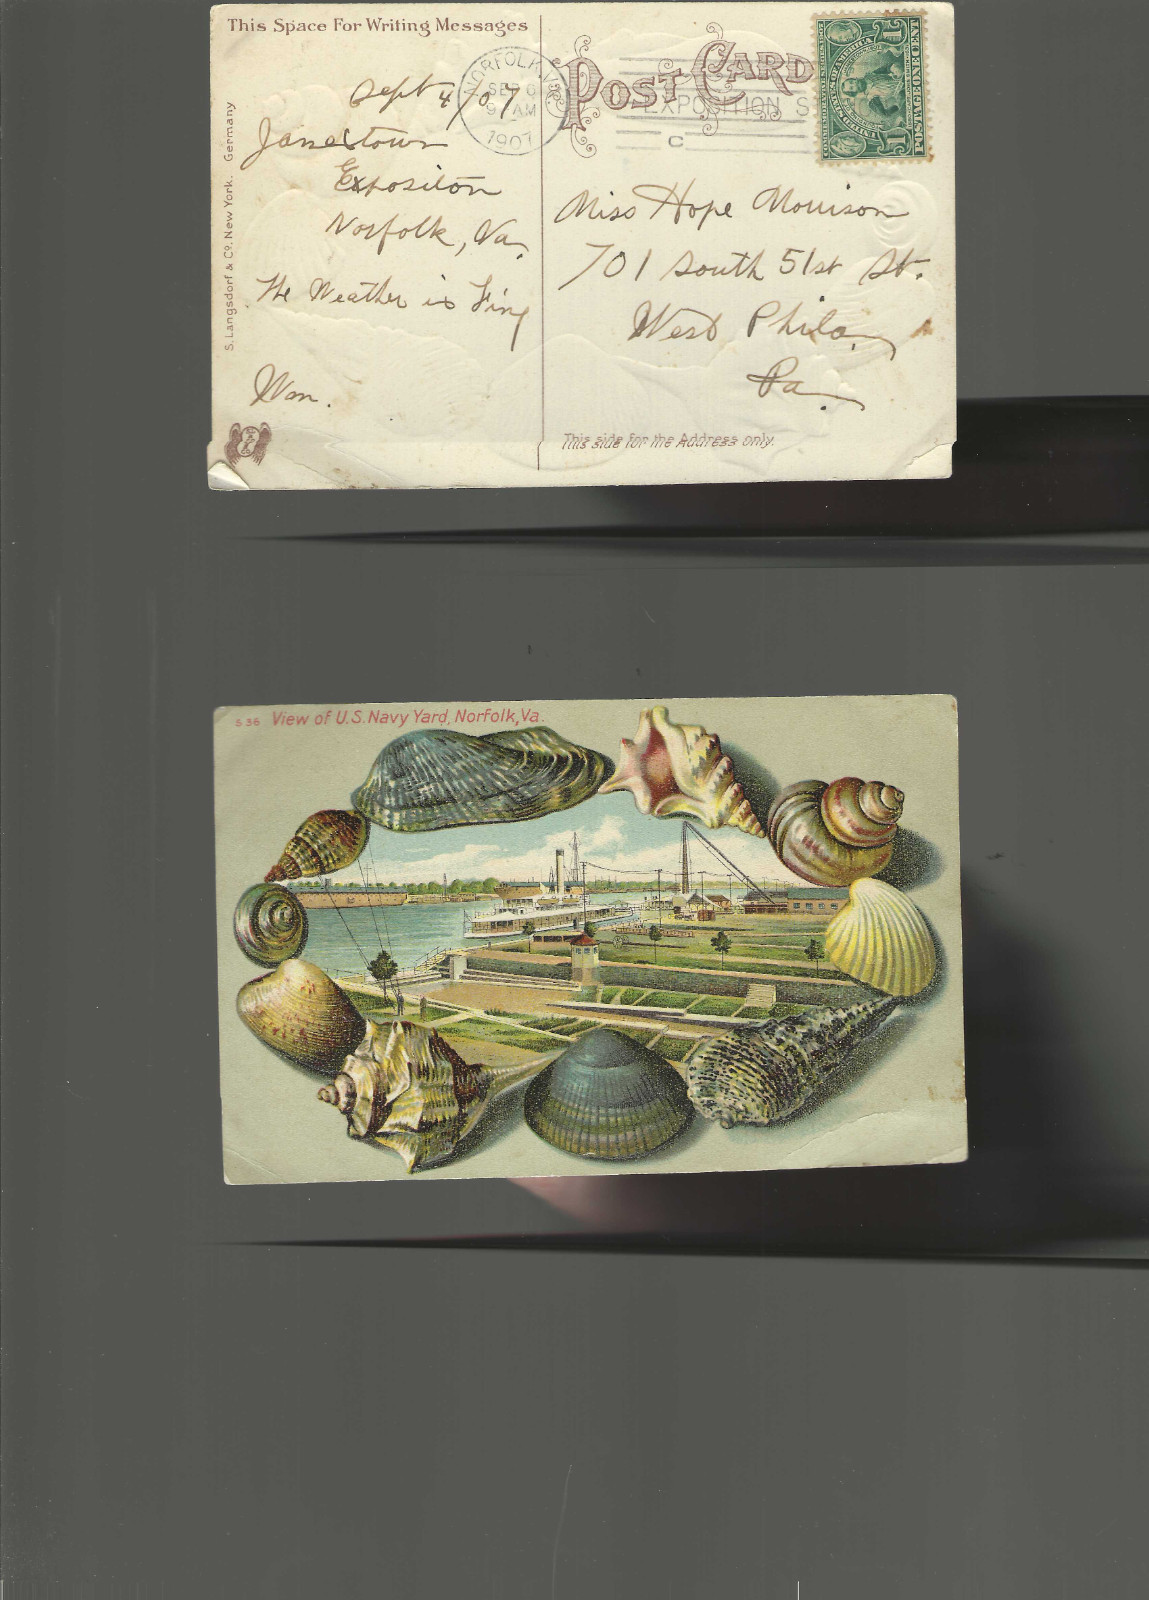 This Space For Writing Messages
Sept 4/07
Jamestown
Exposition
Norfolk, Va.
The Weather is Fine
Wm.
S. Langsdorf & Co. New York. Germany
NORFOLK, VA.
SEP 6
9 AM
1907
EXPOSITION S
C
POST CARD
COMMEMORATIVE SERIES 1907
UNITED STATES OF AMERICA
POSTAGE ONE CENT
1 1
Miss Hope Morrison
701 South 51st St.
West Phila,
Pa.
This side for the Address only.
S 36 View of U.S. Navy Yard, Norfolk, Va.